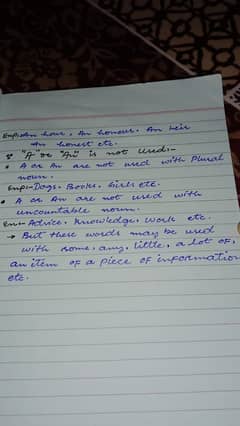 Exp:- An hour, An honour, An heir
An honest etc.
"A" or "An" is not used:-
• A or An are not used with Plural
noun.
Exp:- Dogs, Books, Girls etc.
• A or An are not used with
uncountable noun.
Exp:- Advice, Knowledge, Work etc.
→ But these words may be used
with some, any, little, a lot of,
an item of a piece of information
etc.